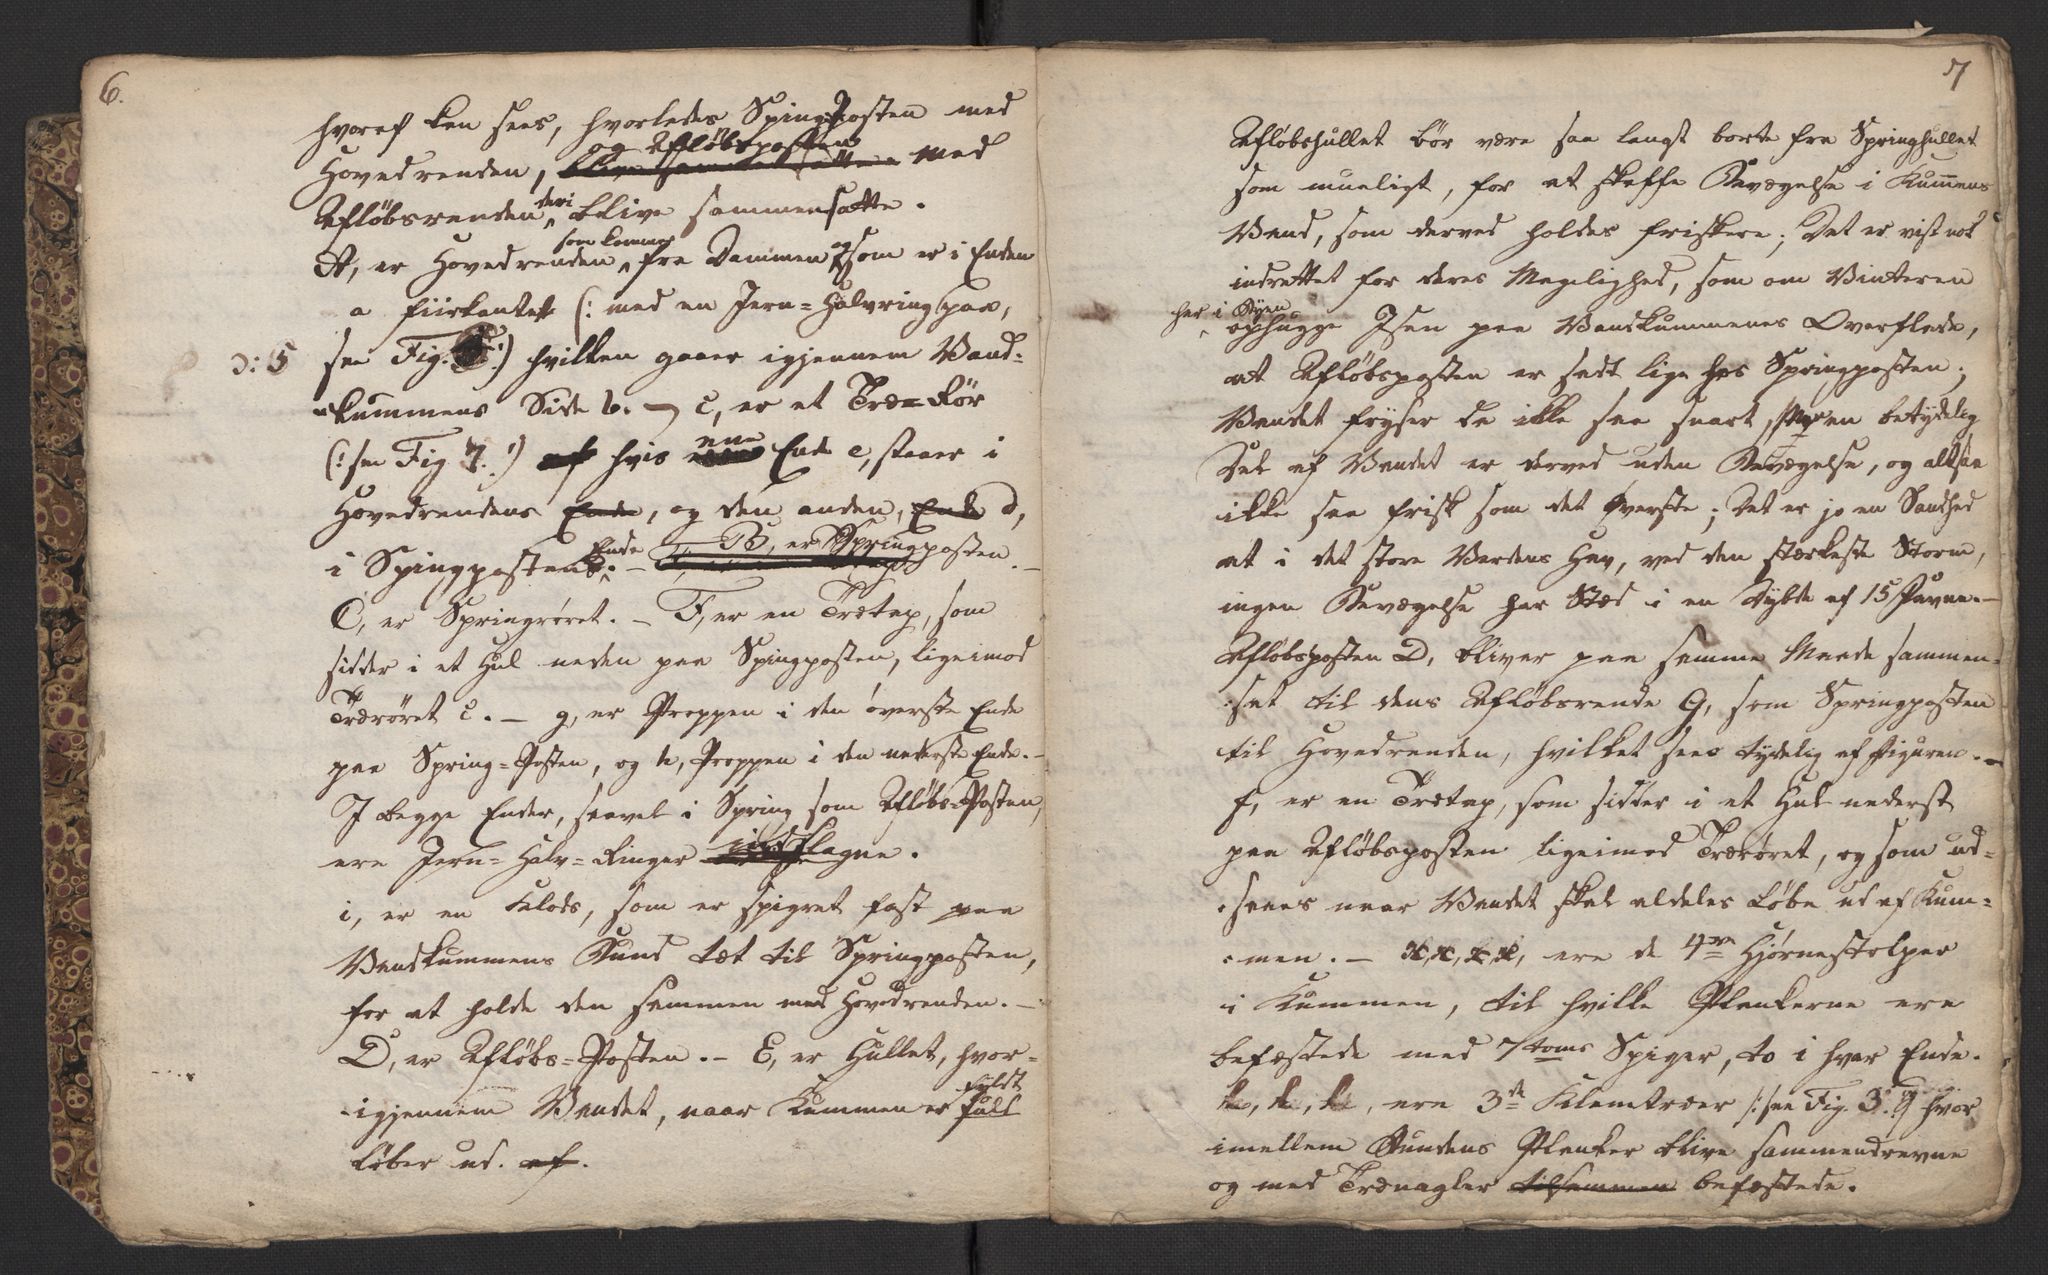 6.
hvoraf kan sees, hvorledes SpingPosten med
og Afløbsposten
Hovedrenden, blive sammensatte med
Afløbsrenden deri blive sammensatte.
som kommer
A, er Hovedrenden fra Dammen og som er i Enden
a fiirkantet (: med en Jern=Halvring paa,
ɔ: 5
see Fig. :) hvilken gaaer igjennem Vand-
kummens Side b. – c, er et Træ=Rør
(: see Fig 7. :) af hvis ene Ende e, staaer i
Hovedrendens Ende, og den anden, Ende d,
i Spingpostens Ende. – B, er Springposten. –
C, er Springrøret. – F, er en Trætap, som
sidder i et Hul neden paa Spingposten, ligeimod
Trærøret c. – g, er Proppen i den øverste Ende
paa Spring=Posten, og h, Proppen i den nederste Ende. –
I begge Ender, saavel i Spring som Afløbs=Posten,
ere Jern=Halv=Ringer indslagne.
i, er en Klods, som er spigret fast paa
Vandkummens Bund tæt til Springposten,
for at holde den sammen med Hovedrenden. –
D, er Afløbs=Posten. – E, er Hullet, hvor-
fyldt
igjennem Vandet, naar Kummen er fuld
løber ud. af.
7
Afløbshullet bør være saa langt borte fra Springhullet
som mueligt, for at skaffe Bevægelse i Kummens
Vand, som derved holdes friskere; Det er vist nok
indrettet for deres Magelighed, som om Vinteren
her i Byen
ophugge Isen paa Vandkummenes Overflade,
at Afløbsposten er sadt lige hos Springposten;
Vandet fryser da ikke saa snart, Men en betydelig
Deel af Vandet er derved uden Bevægelse, og altsaa
ikke saa frisk som det øverste; Det er jo en Sandhed
at i det store Verdens Hav, ved den stærkeste Storm,
ingen Bevægelse har Stæd i en Dybde af 15 Favne. –
Afløbsposten D, bliver paa samme Maade sammen-
sat til dens Afløbsrende G, som Springposten
til Hovedrenden, hvilket sees tydelig af Figuren. –
f, er en Trætap, som sidder i et Hul nederst
paa Afløbsposten ligeimod Trærøret, og som ud-
saaes naar Vandet skal aldeles løbe ud af Kum-
men. – x, x, x, x, ere de 4re Hjørnestolper
i Kummen, til hvilke Plankerne ere
befæstede med 7 toms Spiger, to i hver Ende.
k, k, k, ere 3de Klemtræer /: see Fig. 3. :/ hvor
imellem Bundens Planker blive sammendrevne
og med Trænagler tilsammen befæstede.